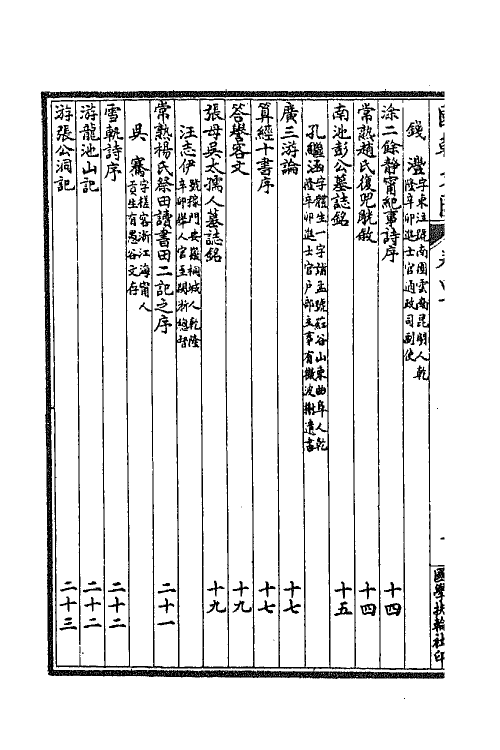 國朝文匯 卷四
國學扶輪社印
錢灃 字東注號南園雲南昆明人乾隆辛卯進士官通政司副使
涂二餘靜甯紀事詩序 十四
常熟趙氏復兕觥敘 十四
南池彭公墓誌銘 十五
孔繼涵 字體生一字誧孟號葒谷山東曲阜人乾隆辛卯進士官戶部主事有微波榭遺書
廣三游論 十七
算經十書序 十七
答譽客文 十九
張母吳太孺人墓誌銘 十九
汪志伊 號稼門安徽桐城人乾隆辛卯舉人官至閩浙總督
常熟楊氏祭田讀書田二記之序 二十一
吳騫 字槎客浙江海甯人貢生有愚谷文存
雪軌詩序 二十二
游龍池山記 二十二
游張公洞記 二十三